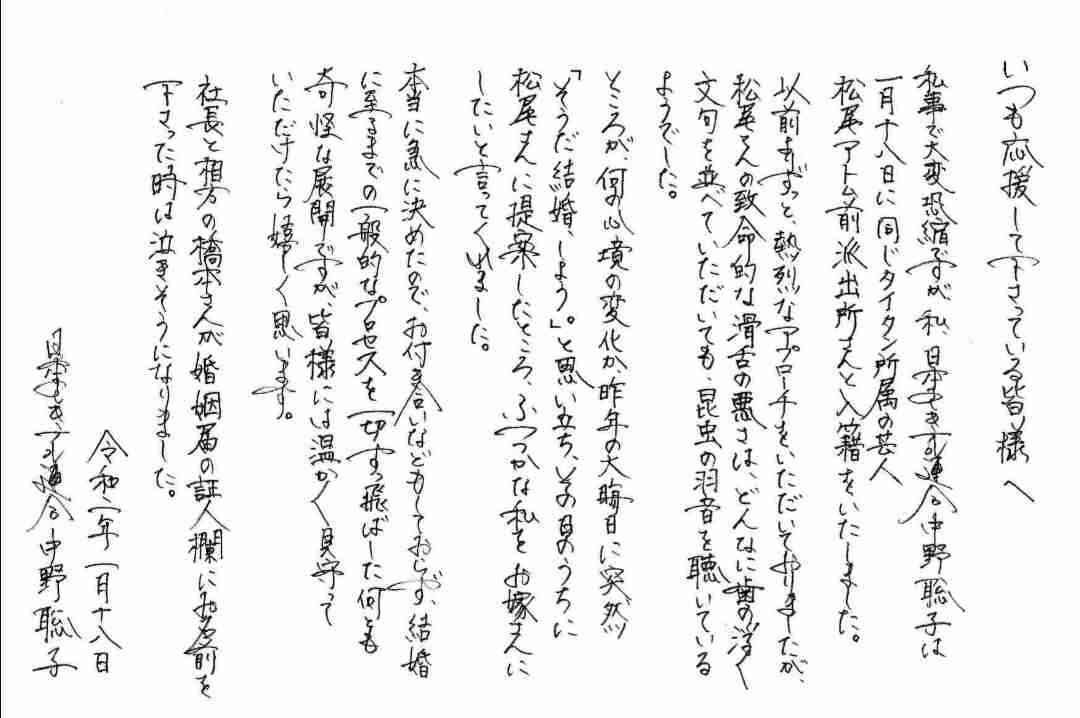 いつも応援して下さっている皆様へ
私事で大変恐縮ですが、私、日本エレキテル連合中野聡子は
一月十八日に同じタイタン所属の芸人
松尾アトム前派出所さんと入籍をいたしました。
以前よりずっと、熱烈なアプローチをいただいておりましたが、
松尾さんの致命的な滑舌の悪さは、どんなに歯の浮く
文句を並べていただいても、昆虫の羽音を聴いている
ようでした。
ところが、何の心境の変化か、昨年の大晦日に突然
「そうだ結婚しよう。」と思い立ち、その日のうちに
松尾さんに提案したところ、ふつつかな私をお嫁さんに
したいと言ってくれました。
本当に急に決めたので、お付き合いなどもしておらず、結婚
に至るまでの一般的なプロセスを一切すっ飛ばした何とも
奇怪な展開ですが、皆様には温かく見守って
いただけたら嬉しく思います。
社長と相方の橋本さんが婚姻届の証人欄にお名前を
下さった時は泣きそうになりました。
令和二年一月十八日
日本エレキテル連合中野聡子